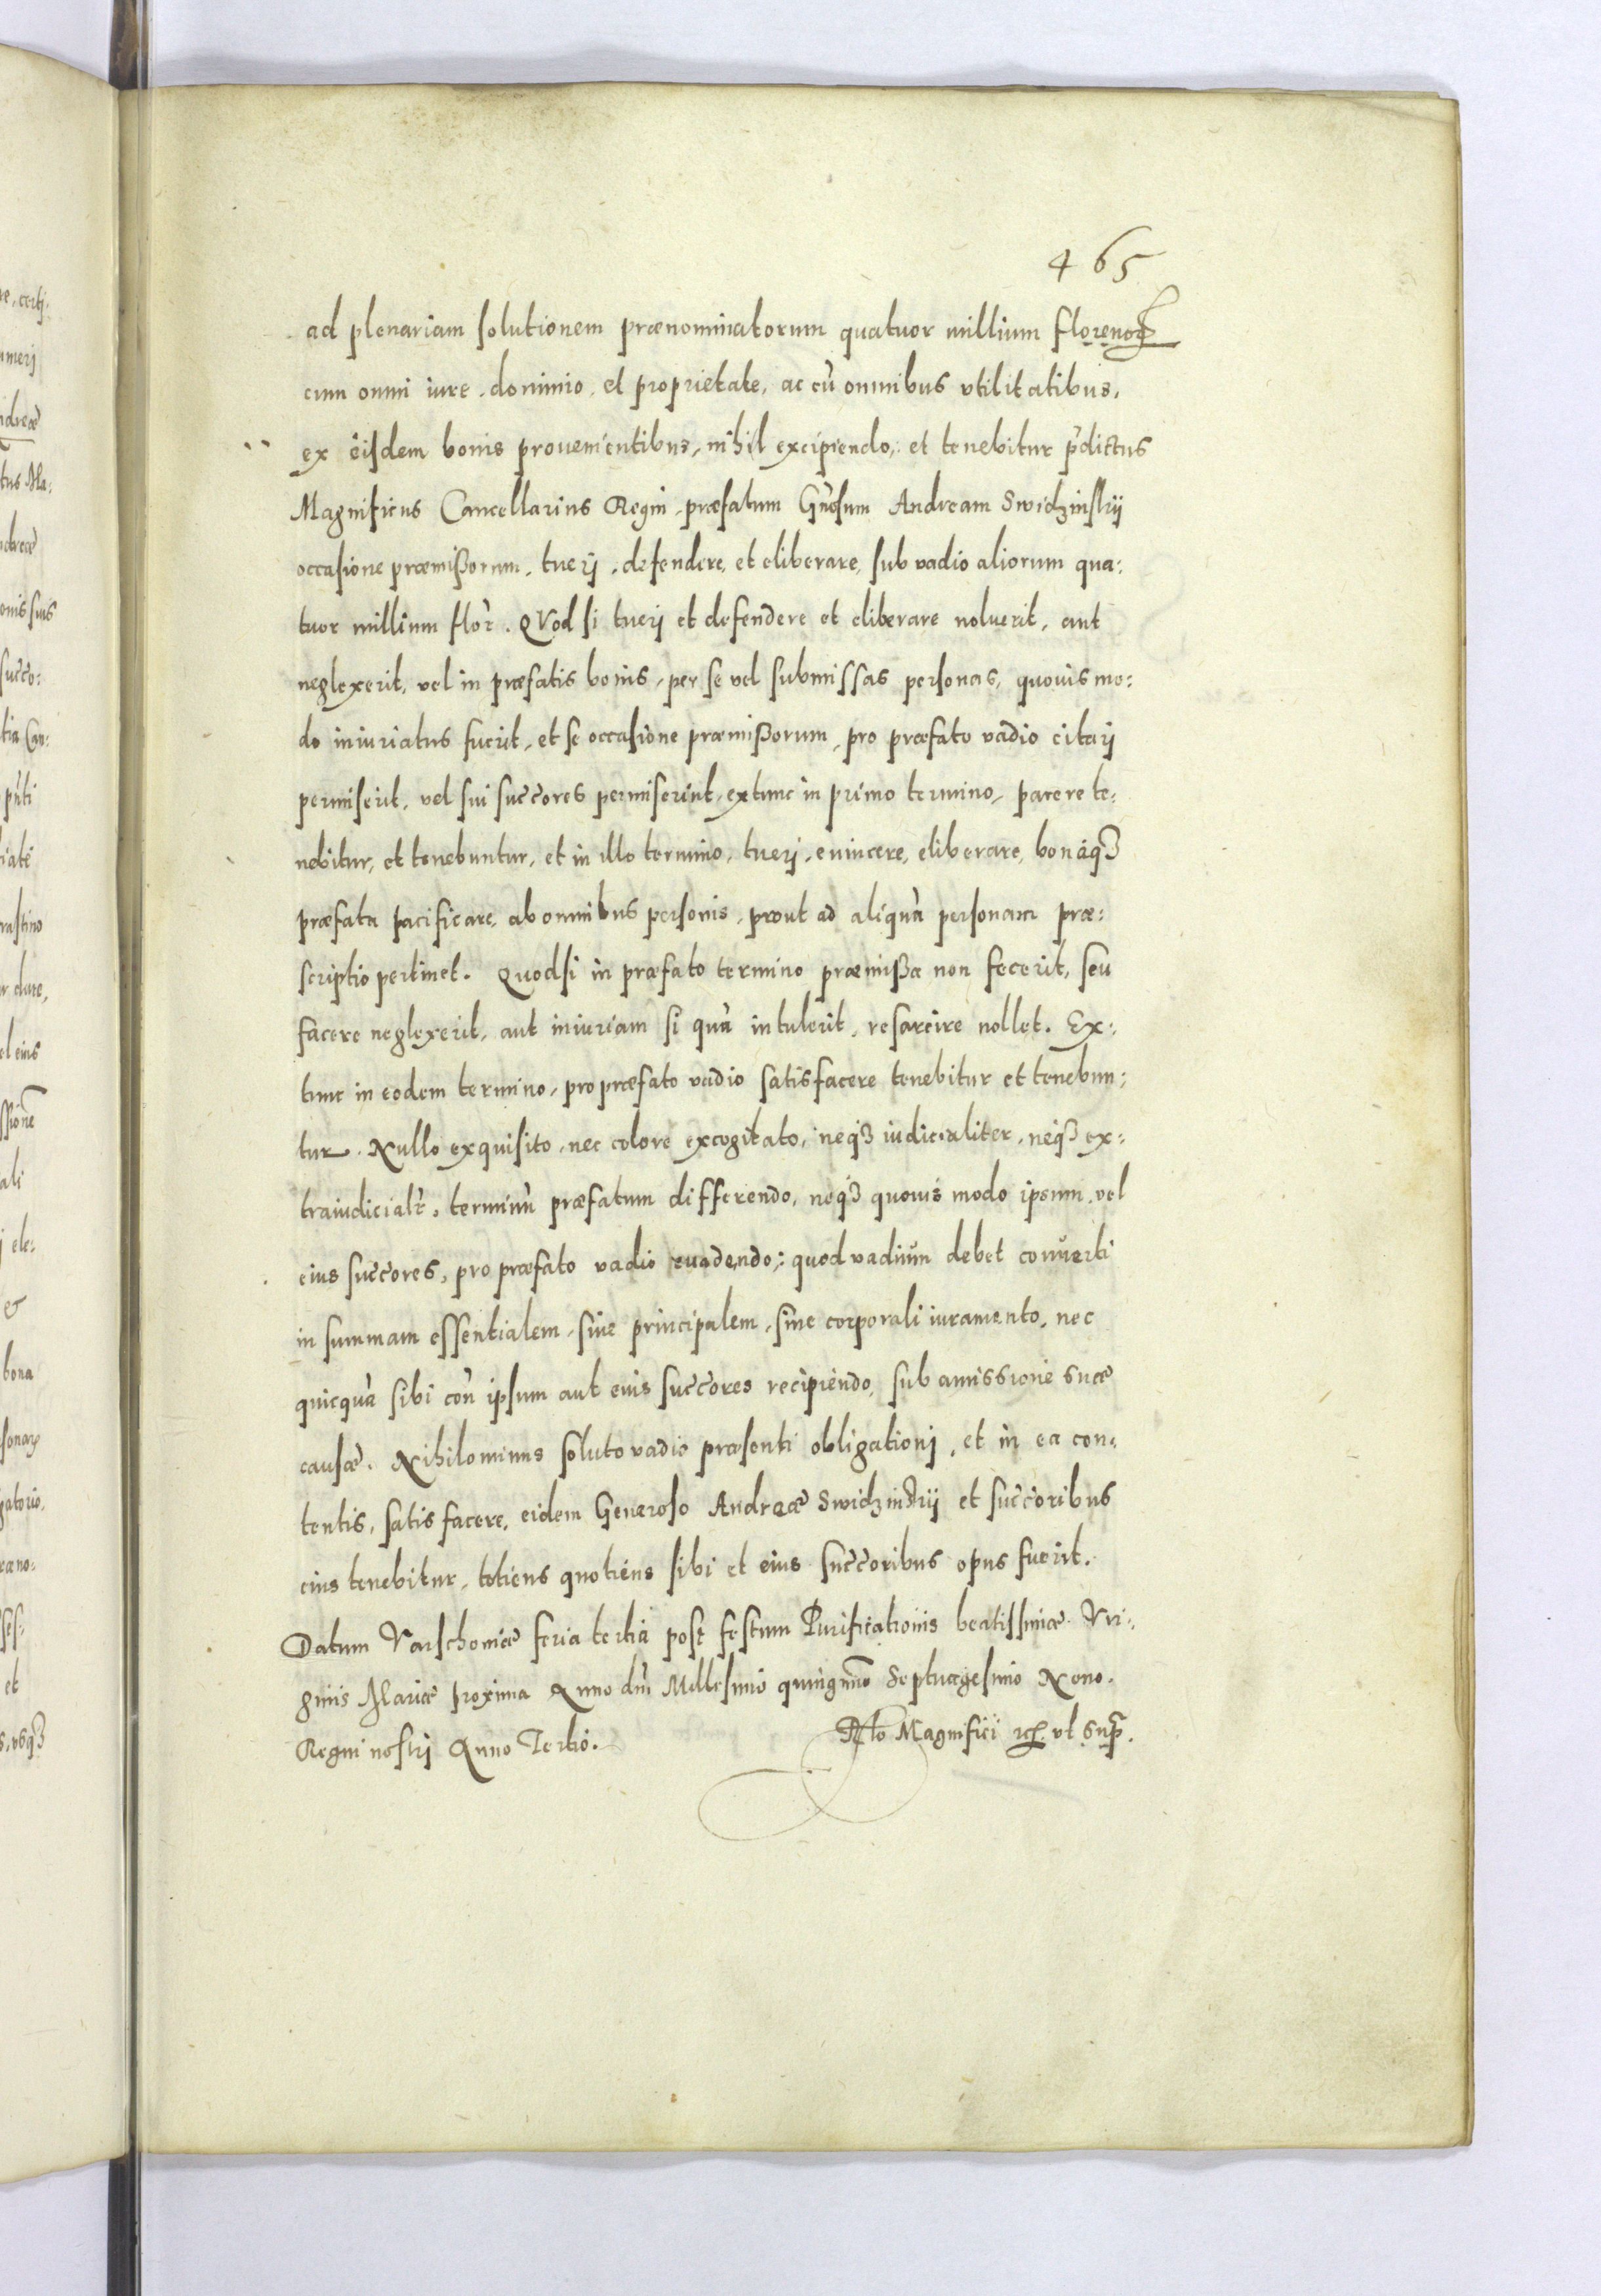 465
ad plenariam solutionem prænominatorum quatuor millium florenoꝝ
cum omni iure, dominio, et proprietate, ac cũ omnibus vtilitatibus,
ex eisdem bonis prouenientibus, nihil excipiendo, et tenebitur p̃dictus
Magnificus Cancellarius Regni, præfatum Gñosum Andream Swidzinskij
occasione præmißorum, tuerj, defendere, et eliberare, sub vadio aliorum qua:
tuor millium flor̃. QVod si tuerj et defendere et eliberare noluerit, aut
neglexerit, vel in præfatis bonis, per se vel submissas personas, quouis mo:
do iniuriatus fuerit, et se occasione præmißorum, pro præfato vadio citarj
permiserit, vel sui succ̃ores permiserint, extunc in primo termino, parere te:
nebitur, et tenebuntur, et in illo termino, tuerj, euincere, eliberare, bonáqꝫ
præfata pacificare, ab omnibus personis, prout ad aliquã personam præ:
scriptio pertinet. Quodsi in præfato termino præmißa non fecerit, seu
facere neglexerit, aut iniuriam si quã intulerit, resarcire nollet. Ex:
tunc in eodem termino, pro præfato vadio satisfacere tenebitur et tenebun:
tur. Nullo exquisito, nec colore excogitato, neqꝫ iudicialiter, neqꝫ ex:
traiudicialr̃, terminũ præfatum differendo, neqꝫ quouis modo ipsum, vel
eius succ̃ores, pro præfato vadio euadendo: quod vadium debet conuerti
in summam essentialem, siue principalem, sine corporali iuramento, nec
quicquã sibi con̄ ipsum aut eius succ̃ores recipiendo, sub amissione suæ
causæ. Nihilominus soluto vadio præsenti obligationj, et in ea con:
tentis, satisfacere, eidem Generoso Andreæ Swidzinskij et succ̃oribus
eius tenebitur, totiens quotiens sibi et eius succ̃oribus opus fuerit.
Datum Varschouiæ feria tertia post festum Purificationis beatissimæ Vir:
ginis Mariæ proxima Anno dñi Millesimo quingmo Septuagesimo Nono.
Regni nostrj Anno Tertio.
Rlo Magnifici etc. vt supr̃.